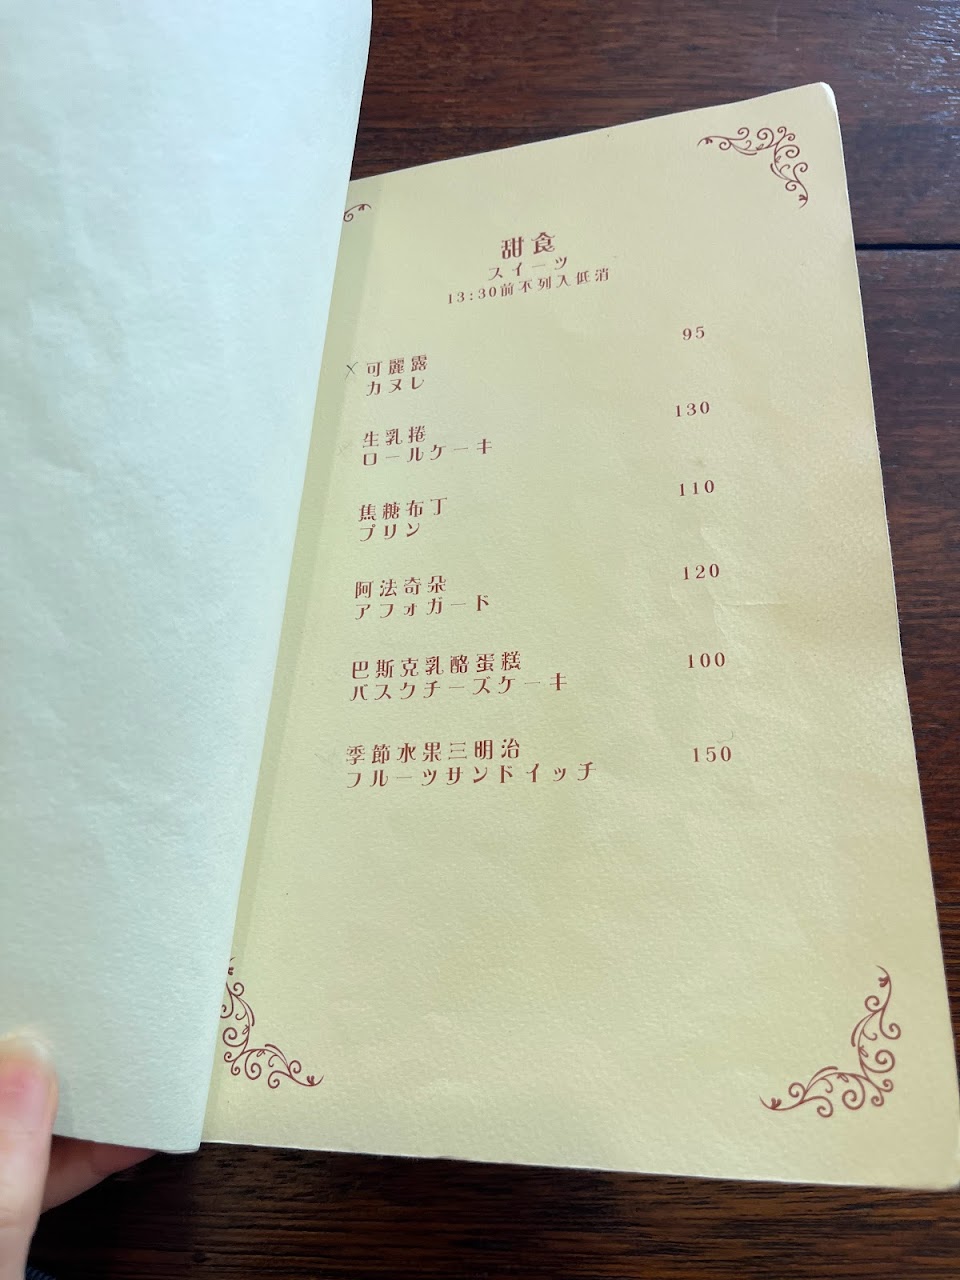 甜食
スイーツ
13:30前不列入低消
X 可麗露 95
カヌレ
生乳捲 130
ロールケーキ
焦糖布丁 110
プリン
阿法奇朵 120
アフォガード
巴斯克乳酪蛋糕 100
バスクチーズケーキ
季節水果三明治 150
フルーツサンドイッチ